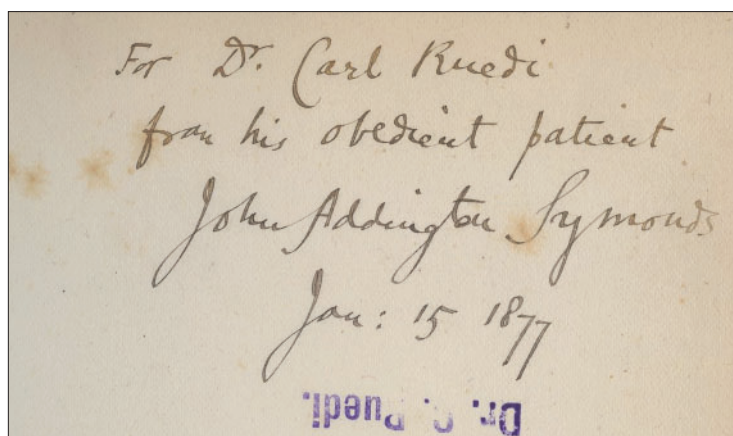 For Dr. Carl Ruedi
from his obedient patient
John Addington Symonds
Jan: 15 1877
Dr. C. Ruedi.